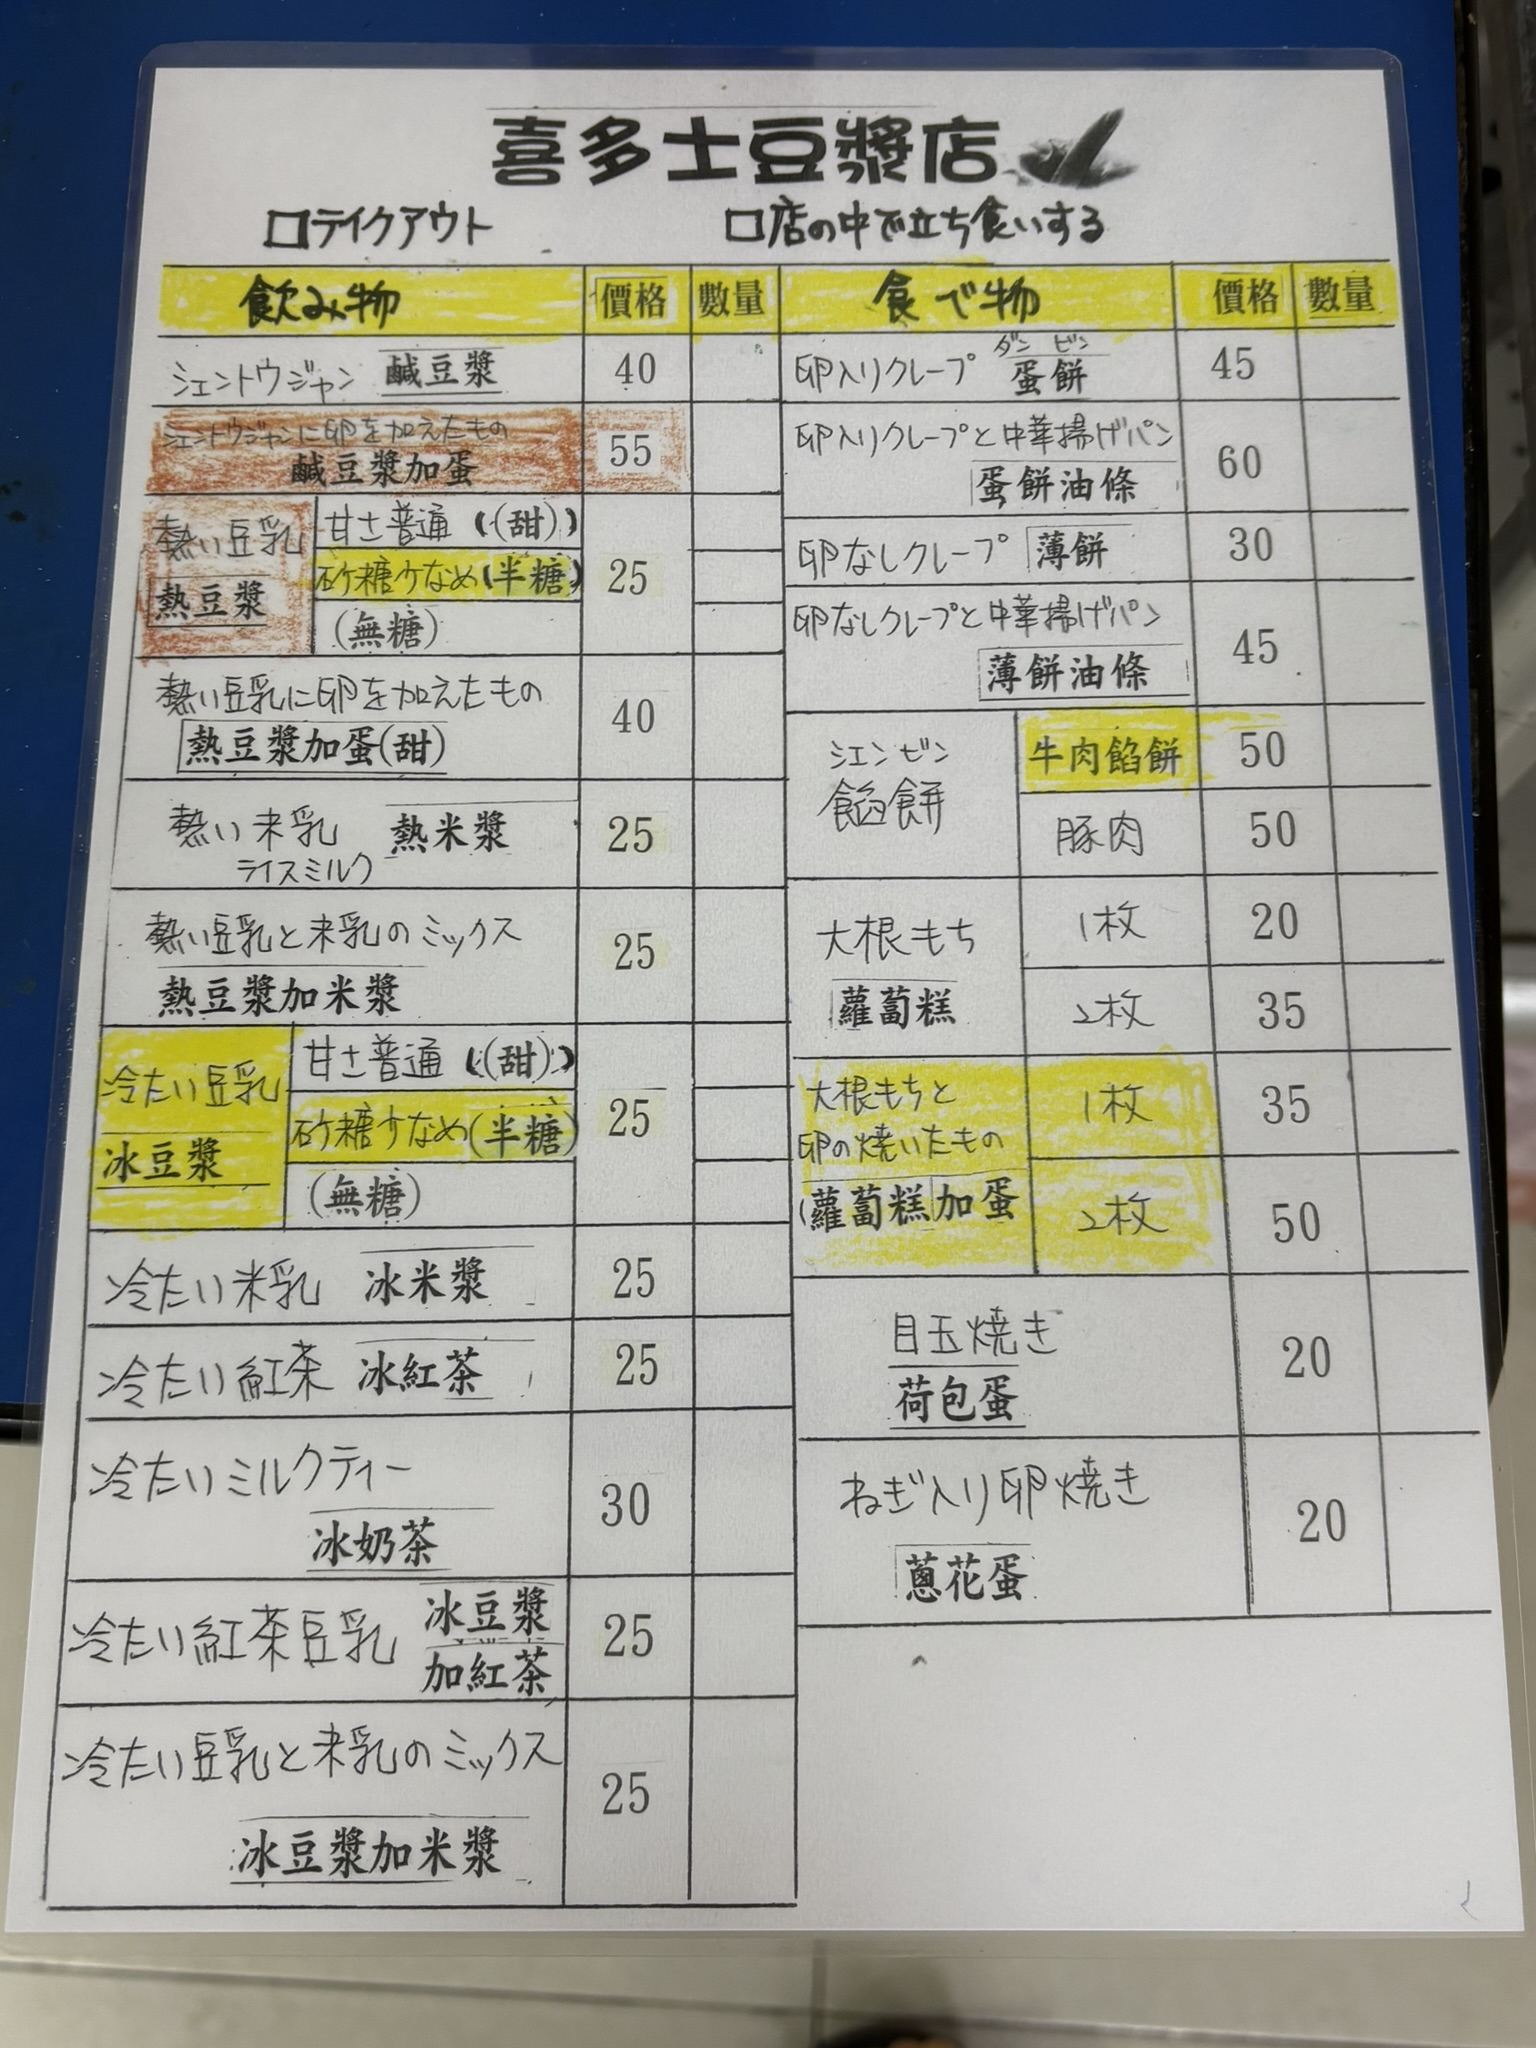 喜多士豆漿店
□テイクアウト
□店の中で立ち食いする
飲み物 價格 數量
シェントウジャン 鹹豆漿 40
シェントウジャンに卵を加えたもの
鹹豆漿加蛋 55
熱い豆乳
熱豆漿
甘さ普通((甜))
砂糖少なめ(半糖) 25
(無糖)
熱い豆乳に卵を加えたもの
熱豆漿加蛋(甜) 40
熱い米乳 熱米漿 25
ライスミルク
熱い豆乳と米乳のミックス
熱豆漿加米漿 25
冷たい豆乳
冰豆漿
甘さ普通((甜))
砂糖少なめ(半糖) 25
(無糖)
冷たい米乳 冰米漿 25
冷たい紅茶 冰紅茶 25
冷たいミルクティー
冰奶茶 30
冷たい紅茶豆乳 冰豆漿
加紅茶 25
冷たい豆乳と米乳のミックス
冰豆漿加米漿 25
食で物 價格 數量
ダン ビン
卵入りクレープ 蛋餅 45
卵入りクレープと中華揚げパン
蛋餅油條 60
卵なしクレープ 薄餅 30
卵なしクレープと中華揚げパン
薄餅油條 45
シェンビン
餡餅
牛肉餡餅 50
豚肉 50
大根もち
蘿蔔糕
1枚 20
2枚 35
大根もちと
卵の焼いたもの
(蘿蔔糕加蛋
1枚 35
2枚 50
目玉焼き
荷包蛋 20
ねぎ入り卵焼き
蔥花蛋 20